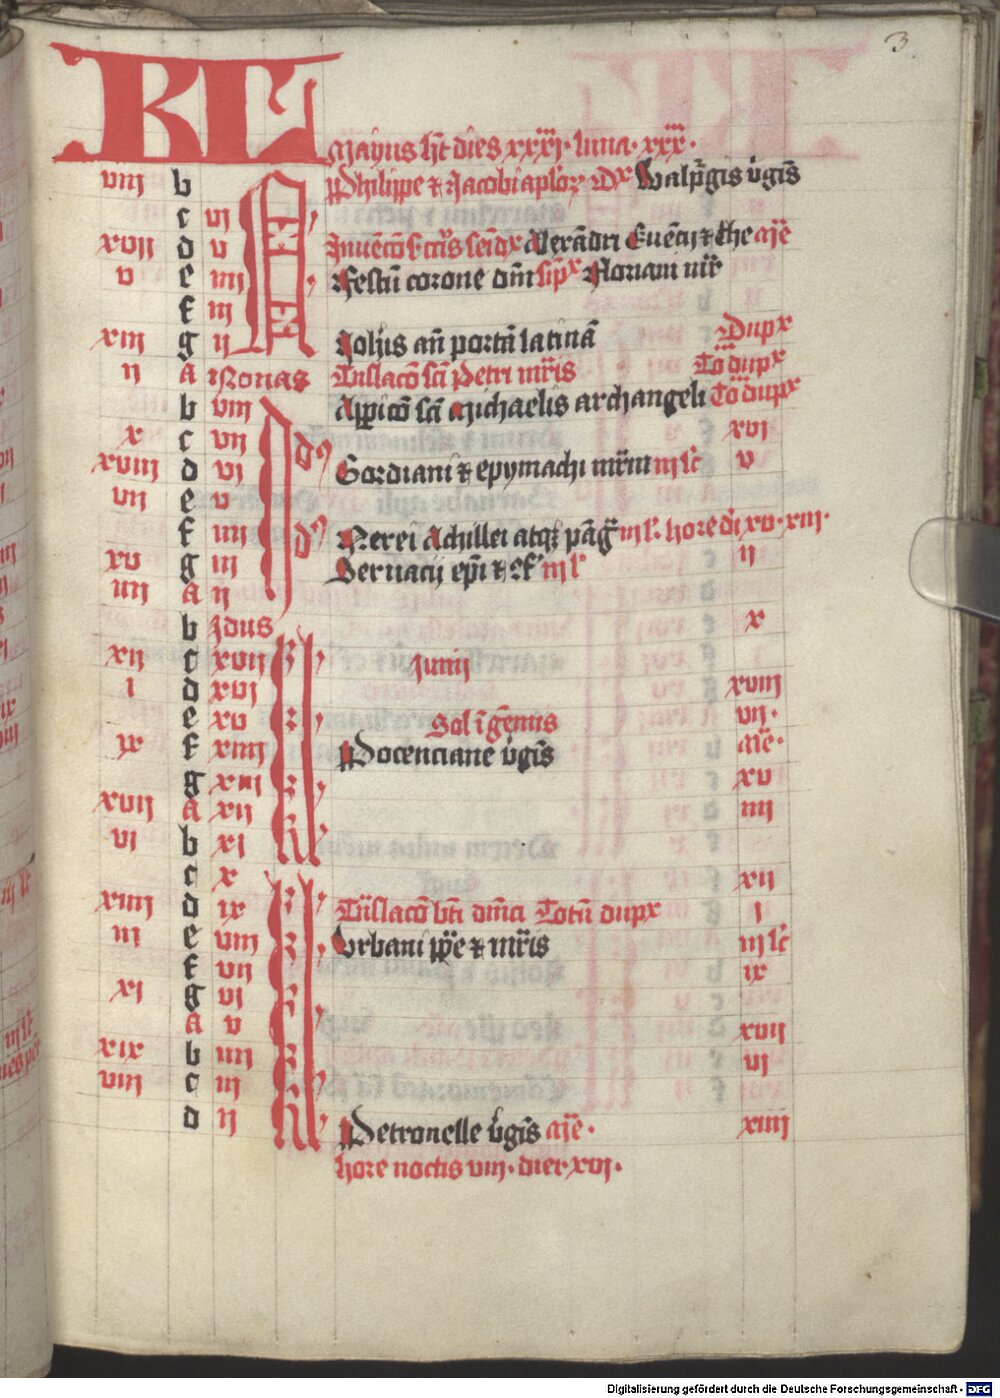 3
KL Mayus ht dies xxxi. luna. xxx.
viii b Philippe et Jacobi aplor Dx Walpgis vgis
c vi
xvii d v Inuencō s crucis semdx Alexādri Euēcij et the aīe
v e iiii Festū corone dni sīpx Floriani mr
f iii
xiii g ii Johis an portā latinā Dupx
ii A Nonas Trāslacō sci Petri mris Totū dupx
b viii Apparicō sci Michaelis archangeli Totū dupx
x c vii xvi
xviii d vi Gordiani et epymachi mrm iij lc v
vii e v
f iiii Nerei Achillei atq pāc iij l. hore di xv. xiii.
xv g iii Seruacij epi et cf iij l ii
iiii A ii
b Idus x
xii c xvii Junij
i d xvi xviii
e xv Sol ī gemis vii.
ix f xiiii Potenciane vgis aīe.
g xiii xv
xvii A xii iiii
vi b xi
c x xii
xiiii d ix Trāslacō bti dnici Totū dupx i
iii e viii Vrbani ppe et mris iij lc
f vii ix
xi g vi
A v xvii
xix b iiii vi
viii c iii
d ii Petronelle vgis aīe. xiiii
hore noctis viii. dier xvi.
Digitalisierung gefördert durch die Deutsche Forschungsgemeinschaft - DFG